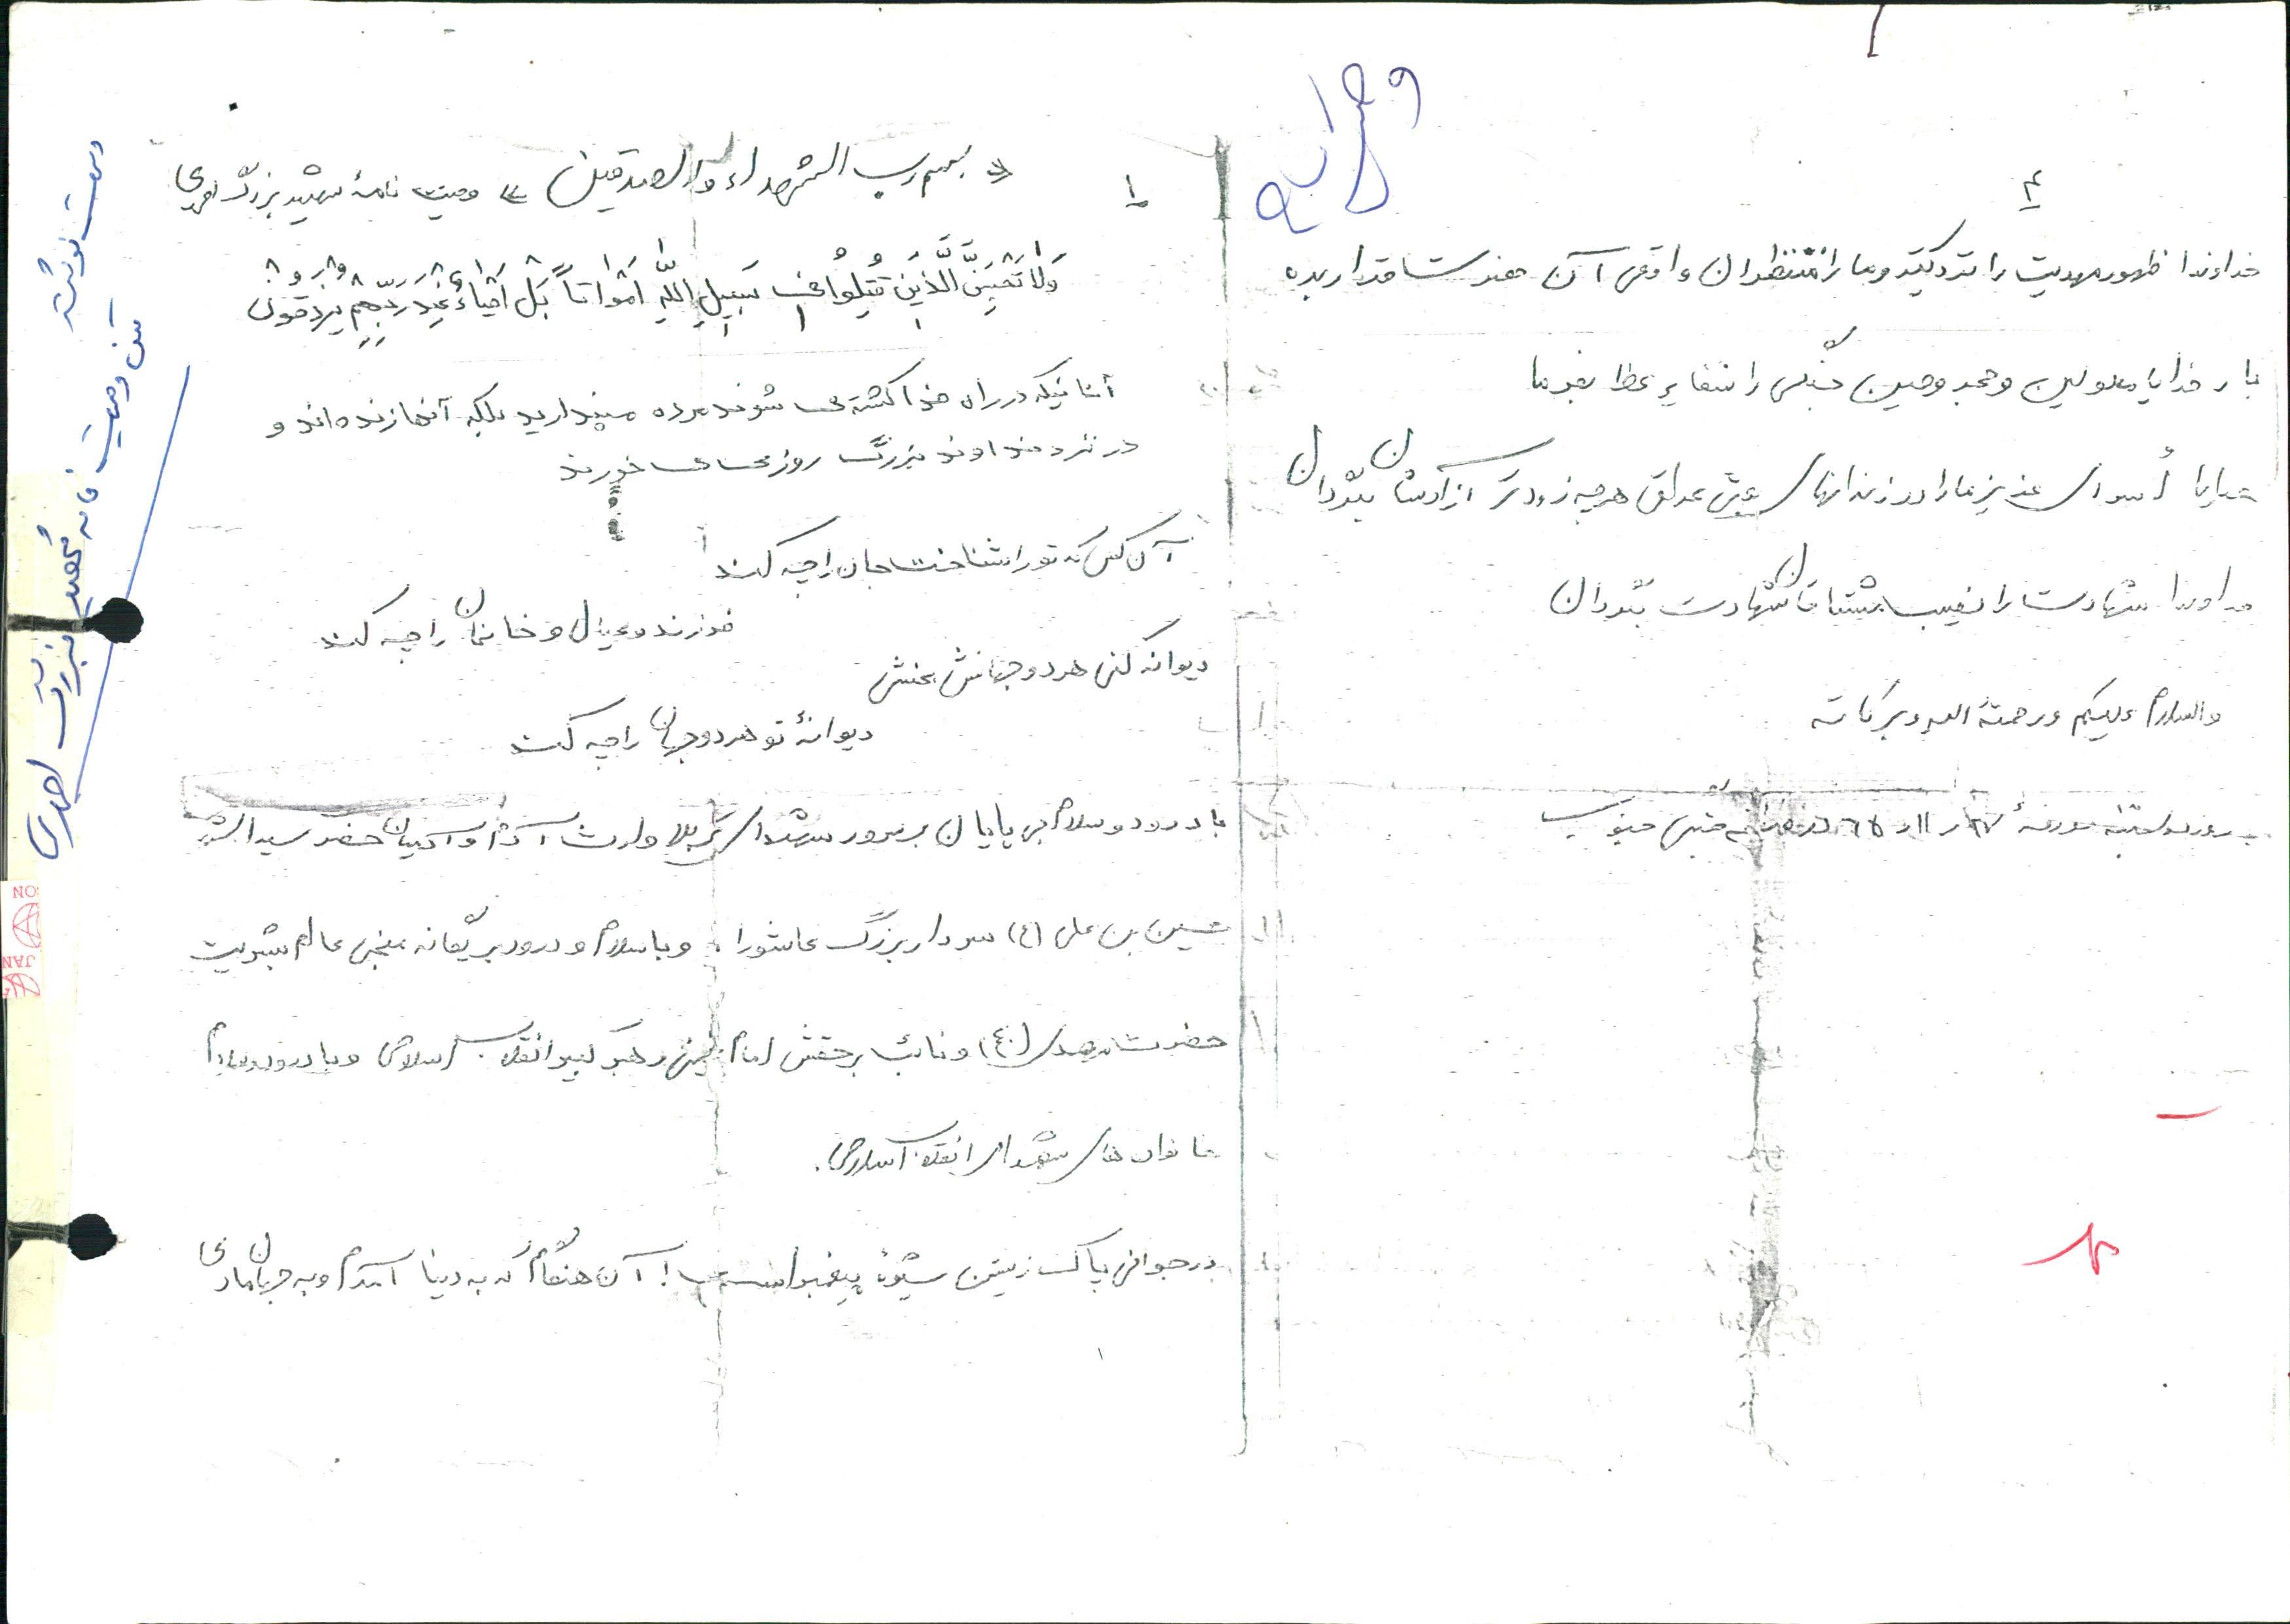 ۱
« بسم رب الشهداء والصدیقین » وصیت نامهٔ شهید بزرگ احمدی
وَلا تَحْسَبَنَّ الَّذینَ قُتِلُوا فی سَبیلِ اللّهِ اَمْواتاً بَلْ اَحْیاءٌ عِنْدَ رَبِّهِمْ یُرْزَقُونَ
آنانیکه در راه خدا کشته می شوند مرده مپندارید بلکه آنها زنده اند و
در نزد خداوند بزرگ روزی می خورند
آن کس که تو را شناخت جان را چه کند
فرزند و عیال و خانمان را چه کند
دیوانه کنی هر دو جهانش بخشی
دیوانهٔ تو هر دو جهان را چه کند
با درود و سلام بی پایان بر سرور شهدای کربلا وارث آدم و آدمیان حضرت سیدالشهدا
حسین بن علی (ع) سردار بزرگ عاشورا، و با سلام و درود بر یگانه منجی عالم بشریت
حضرت مهدی (ع) و نائب برحقش امام خمینی رهبر کبیر انقلاب اسلامی و با درود و سلام
خانواده های شهدای انقلاب اسلامی.
در جوانی پاک زیستن شیوهٔ پیغمبر است! آن هنگام که به دنیا آمدم و به جهان مادی
۴
خداوندا ظهور مهدیت را نزدیکتر و ما را از منتظران واقعی آن حضرت قرار بده
بار خدایا معلولین و مجروحین جنگی را شفای عطا بفرما
خدایا اُسرای عزیز ما را از زندانهای بعثی عراق هر چه زودتر آزادشان بگردان
خداوندا شهادت را نصیب مشتاقان شهادت بگردان
والسلام علیکم و رحمة الله و برکاته
روز دوشنبه مورخهٔ ۲۷ ر ۱۱ ر ۶۵ جنگی جنوب
دست نوشته
متن وصیت نامه شهید بزرگ احمدی